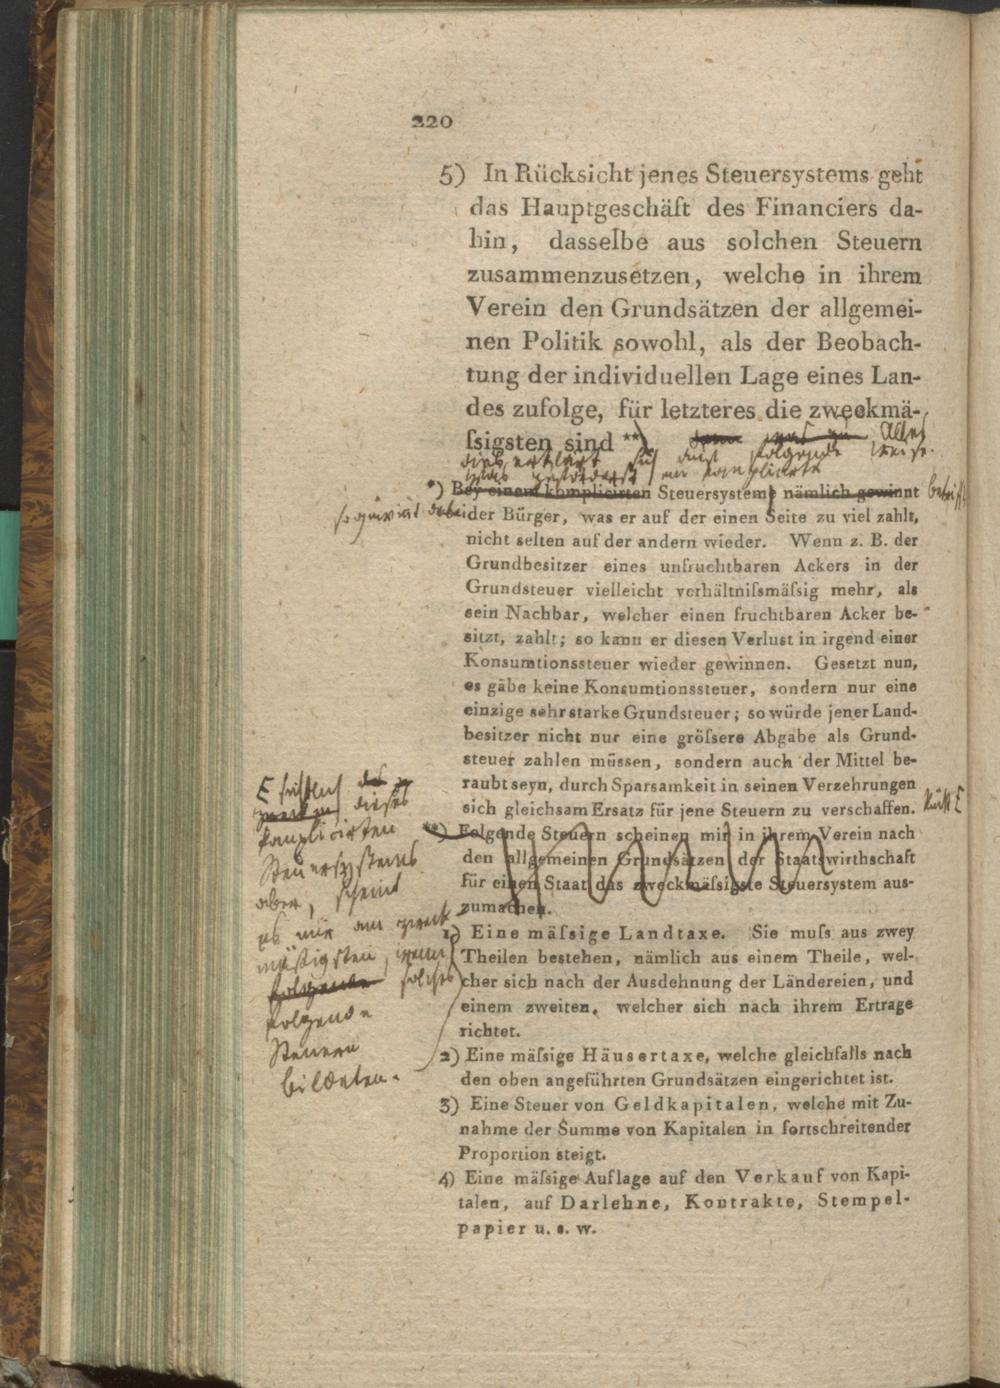 220
5) In Rücksicht jenes Steuersystems geht
das Hauptgeschäft des Financiers da-
hin, dasselbe aus solchen Steuern
zusammenzusetzen, welche in ihrem
Verein den Grundsätzen der allgemei-
nen Politik sowohl, als der Beobach-
tung der individuellen Lage eines Lan-
des zufolge, für letzteres die zweckmä-
ſsigsten sind **)
Alles
dies erklärt sich auf folgende Weise.
was zuförderst ein komplicirte
*) Bey einem komplicirten Steuersysteme nämlich gewinnt
betrifft
so gewinnt dabei
der Bürger, was er auf der einen Seite zu viel zahlt,
nicht selten auf der andern wieder. Wenn z. B. der
Grundbesitzer eines unfruchtbaren Ackers in der
Grundsteuer vielleicht verhältniſsmäſsig mehr, als
sein Nachbar, welcher einen fruchtbaren Acker be-
sitzt, zahlt; so kann er diesen Verlust in irgend einer
Konsumtionssteuer wieder gewinnen. Gesetzt nun,
es gäbe keine Konsumtionssteuer, sondern nur eine
einzige sehr starke Grundsteuer; so würde jener Land-
besitzer nicht nur eine gröſsere Abgabe als Grund-
steuer zahlen müssen, sondern auch der Mittel be-
raubt seyn, durch Sparsamkeit in seinen Verzehrungen
sich gleichsam Ersatz für jene Steuern zu verschaffen.
**) Folgende Steuern scheinen mir in ihrem Verein nach
den allgemeinen Grundsätzen der Staatswirthschaft
für einen Staat das zweckmäſsigste Steuersystem aus-
zumachen.
dieses
komplicirten
Steuersystems
aber, scheint
es mir am zweck
mäßigsten, wenn
solches
folgende
Steuern
bildeten.
1) Eine mäſsige Landtaxe. Sie muſs aus zwey
Theilen bestehen, nämlich aus einem Theile, wel-
cher sich nach der Ausdehnung der Ländereien, und
einem zweiten, welcher sich nach ihrem Ertrage
richtet.
2) Eine mäſsige Häusertaxe, welche gleichfalls nach
den oben angeführten Grundsätzen eingerichtet ist.
3) Eine Steuer von Geldkapitalen, welche mit Zu-
nahme der Summe von Kapitalen in fortschreitender
Proportion steigt.
4) Eine mäſsige Auflage auf den Verkauf von Kapi-
talen, auf Darlehne, Kontrakte, Stempel-
papier u. s. w.